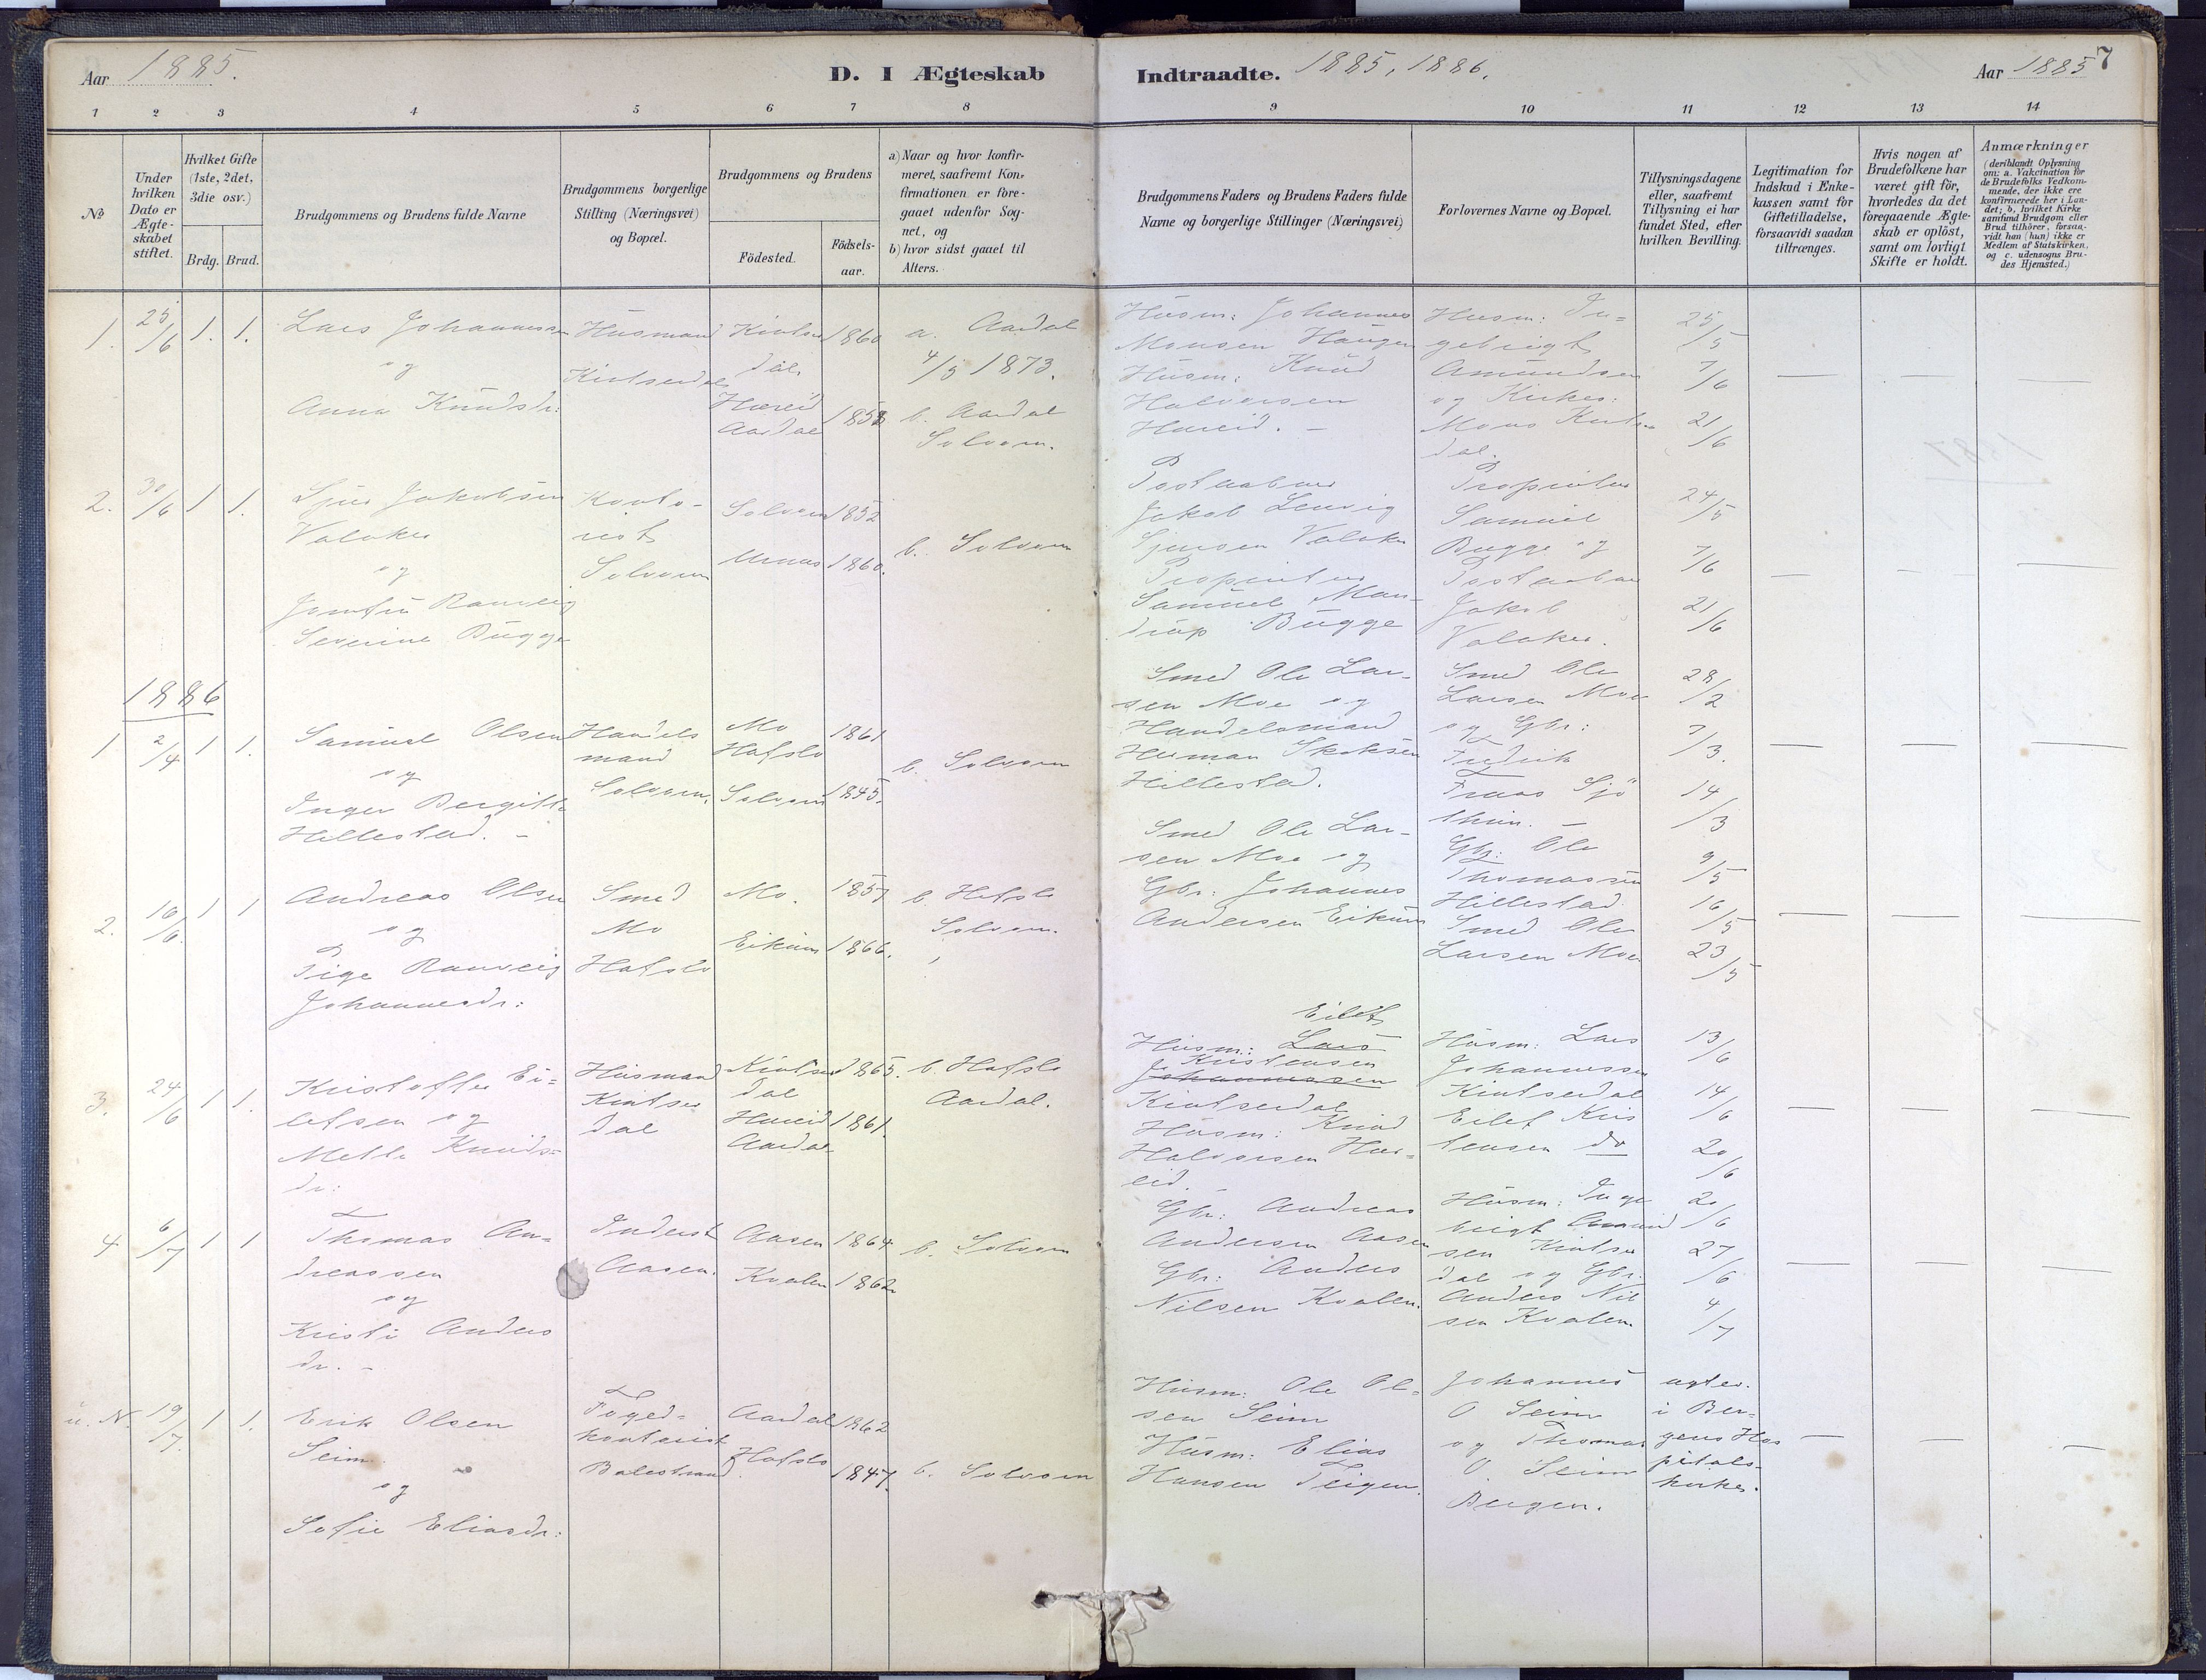 Aar 1885.
D. I Ægteskab
Indtraadte. 1885, 1886.
Aar 1885
7
1 2 3 4 5 6 7 8 9 10 11 12 13 14
No
Under hvilken Dato er Ægte-skabet stiftet.
Hvilket Gifte (1ste, 2det, 3die osv.)
Brdg. Brud.
Brudgommens og Brudens fulde Navne
Brudgommens borgerlige Stilling (Næringsvei) og Bopæl.
Brudgommens og Brudens
Födested.
Födsels-aar.
a) Naar og hvor konfir-meret, saafremt Kon-firmationen er fore-gaaet udenfor Sog-net, og
b) hvor sidst gaaet til Alters.
Brudgommens Faders og Brudens Faders fulde Navne og borgerlige Stillinger (Næringsvei)
Forlovernes Navne og Bopæl.
Tillysningsdagene eller, saafremt Tillysning ei har fundet Sted, efter hvilken Bevilling.
Legitimation for Indskud i Enke-kassen samt for Giftetilladelse, forsaavidt saadan tiltrænges.
Hvis nogen af Brudefolkene har været gift för, hvorledes da det foregaaende Ægte-skab er oplöst, samt om lovligt Skifte er holdt.
Anmærkninger
(deriblandt Oplysning om: a. Vakcination för de Brudefolks Vedkom-mende, der ikke ere konfirmerede her i Lan-det; b. hvilket Kirke samfund Brudgom eller Brud tilhörer, forsaa-vidt han (hun) ikke er Medlem af Statskirken, og c. udensogns Bru-des Hjemsted.)
1. 25/6 1. 1.
Lars Johannessen
og
Anna Knudsdr:
Husmand
Kintserdal
Kintser
dal
1860
Hæreid
Aardal
1858
a. Aardal
4/5 1873.
b. Aardal
Solvorn.
Husm: Johannes
Monsen Haugen
Husm: Knud
Halvorsen
Hæreid. -
Husm: In=
gebrigt
Amundsen
og Kirkes:
Mons Kints
dal.
25/5
7/6
21/6
2. 30/6 1 1.
Sjur Jakobsen
Valaker
og
Jomfru Ranveig
Severine Bugge
Konto-
rist
Solvorn
Solvorn 1852
Urnes 1860.
b. Solvorn
Postaabner
Jakob Lenvig
Sjursen Valaker
Proprietær
Samuel Man-
drup Bugge
Proprietær
Samuel
Bugge og
Postaabner
Jakob
Valaker.
24/5
7/6
21/6
1886
1 2/4 1 1.
Samuel Olsen
og
Inger Bergitte
Hillestad. -
Handels
mand
Solvorn.
Mo
Hafslo
1861
Solvorn 1845.
b. Solvorn
Smed Ole Lar-
sen Moe og
Handelsmand
Herman
Hillestad.
Smed Ole
Larsen Moe
og Gbr:
Fredrik
28/2
7/3.
14/3
2. 16/6. 1 1
Andreas Olsen
og
Pige Ranveig
Johannesdr:
Smed
Mo
Hafslo
Mo. 1857
Eikum 1866.
b. Hafslo
Solvorn.
Smed Ole Lar-
sen Moe og
Gbr: Johannes
Andersen Eikum
Gbr: Ole
Thomassen
Hillestad
Smed Ole
Larsen Moe
9/5
16/5
23/5
3. 24/6 1 1.
Kristoffer Ei=
lefsen og
Mette Knuds=
dr:
Husmand
Kintser
dal
Kintser
dal
1865.
Hæreid
Aardal
1861.
b. Hafslo
Aardal.
Eilef
Husm: Lars
Kristensen
Johannessen
Kintserdal
Husm: Knud
Halvorsen Hær=
eid.
Husm: Lars
Johannessen
Kintserdal
Eilef Kris
tensen do
13/6
14/6
20/6
4 6/7 1 1
Thomas An=
dreassen
og
Kristi Anders
dr. -
Inderst
Aasen.
Aasen 1864.
Kvalen 1862
b. Solvorn
Gbr: Andreas
Andersen Aasen
Gbr: Anders
Nilsen Kvalen.
Husm: Inge
brigt Amund
sen Kintser
dal og Gbr.
Anders Nil
sen Kvalen.
20/6
27/6
4/7
u. N. 19/7. 1 1.
Erik Olsen
Seim
og
Sofie Eliasdr:
Foged=
kontorist
Balestrand
Aardal 1862
Hafslo 1847.
b. Solvorn
Husm: Ole Ol=
sen Seim
Husm: Elias
Hansen Teigen.
Johannes
O Seim
og Thomas
O. Seim
Bergen.
i Ber=
gens Hos
pitals-
kirke.